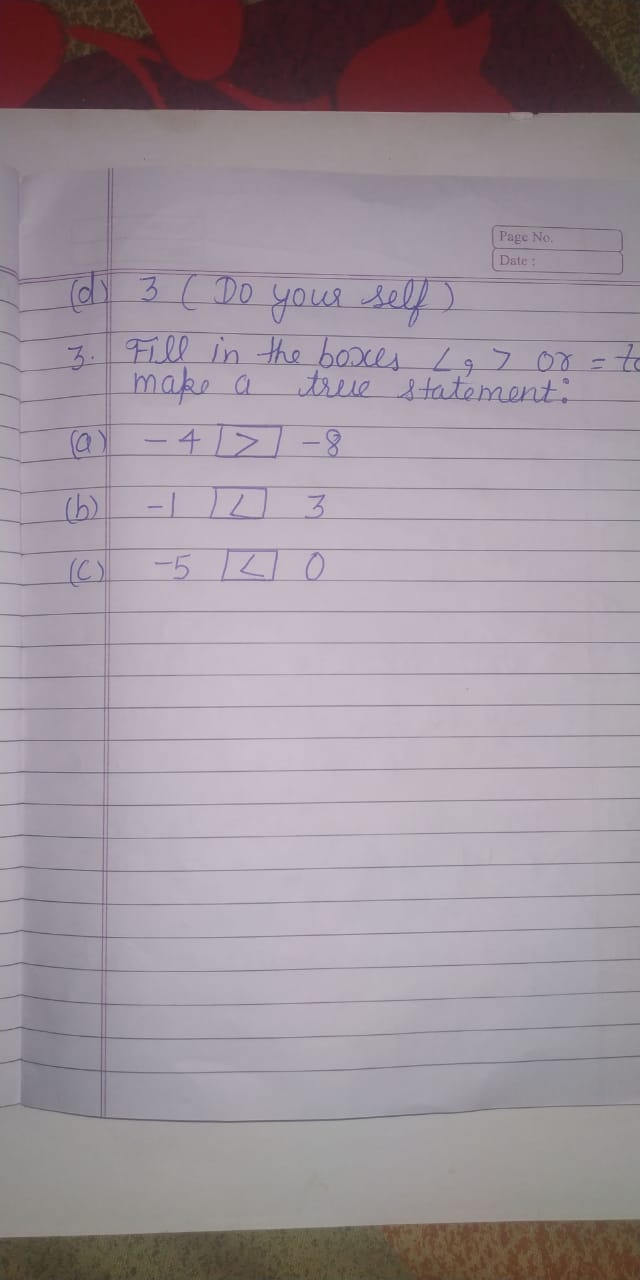 Page No.
Date :
(d) 3 ( Do your self )
3. Fill in the boxes <, > or = to
make a true statement:
(a) -4 > -8
(b) -1 < 3
(c) -5 < 0